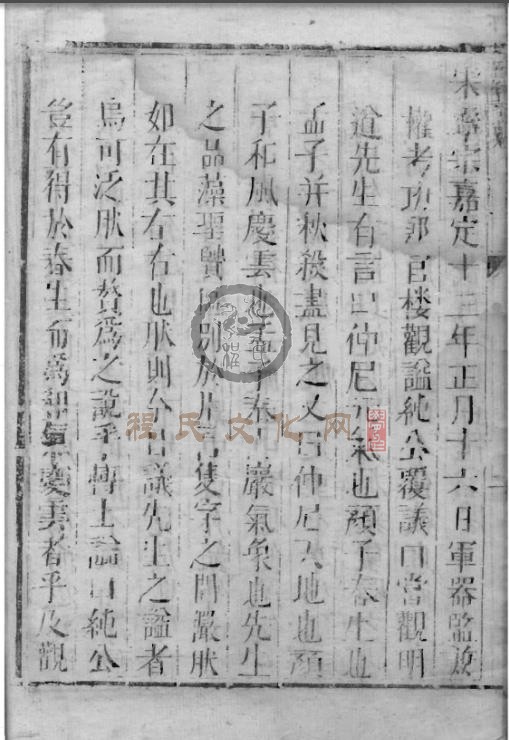 宋寧宗嘉定十三年正月十六日軍器監兼
權考功郎官楼觀謚純公覆議曰當觀明
道先生有言曰仲尼元氣也顏子春生也
孟子并秋殺盡見之又曰仲尼天地也顏
子和風慶雲也孟子泰山巖氣象也先生
之品藻聖賢區別於片言隻字之間嚴肰
如在其右右也肰則今日議先生之謚者
烏可泛肰而贅爲之說乎博士論曰純公
豈有得於春生而爲和氣慶雲者乎及觀
程氏文化网